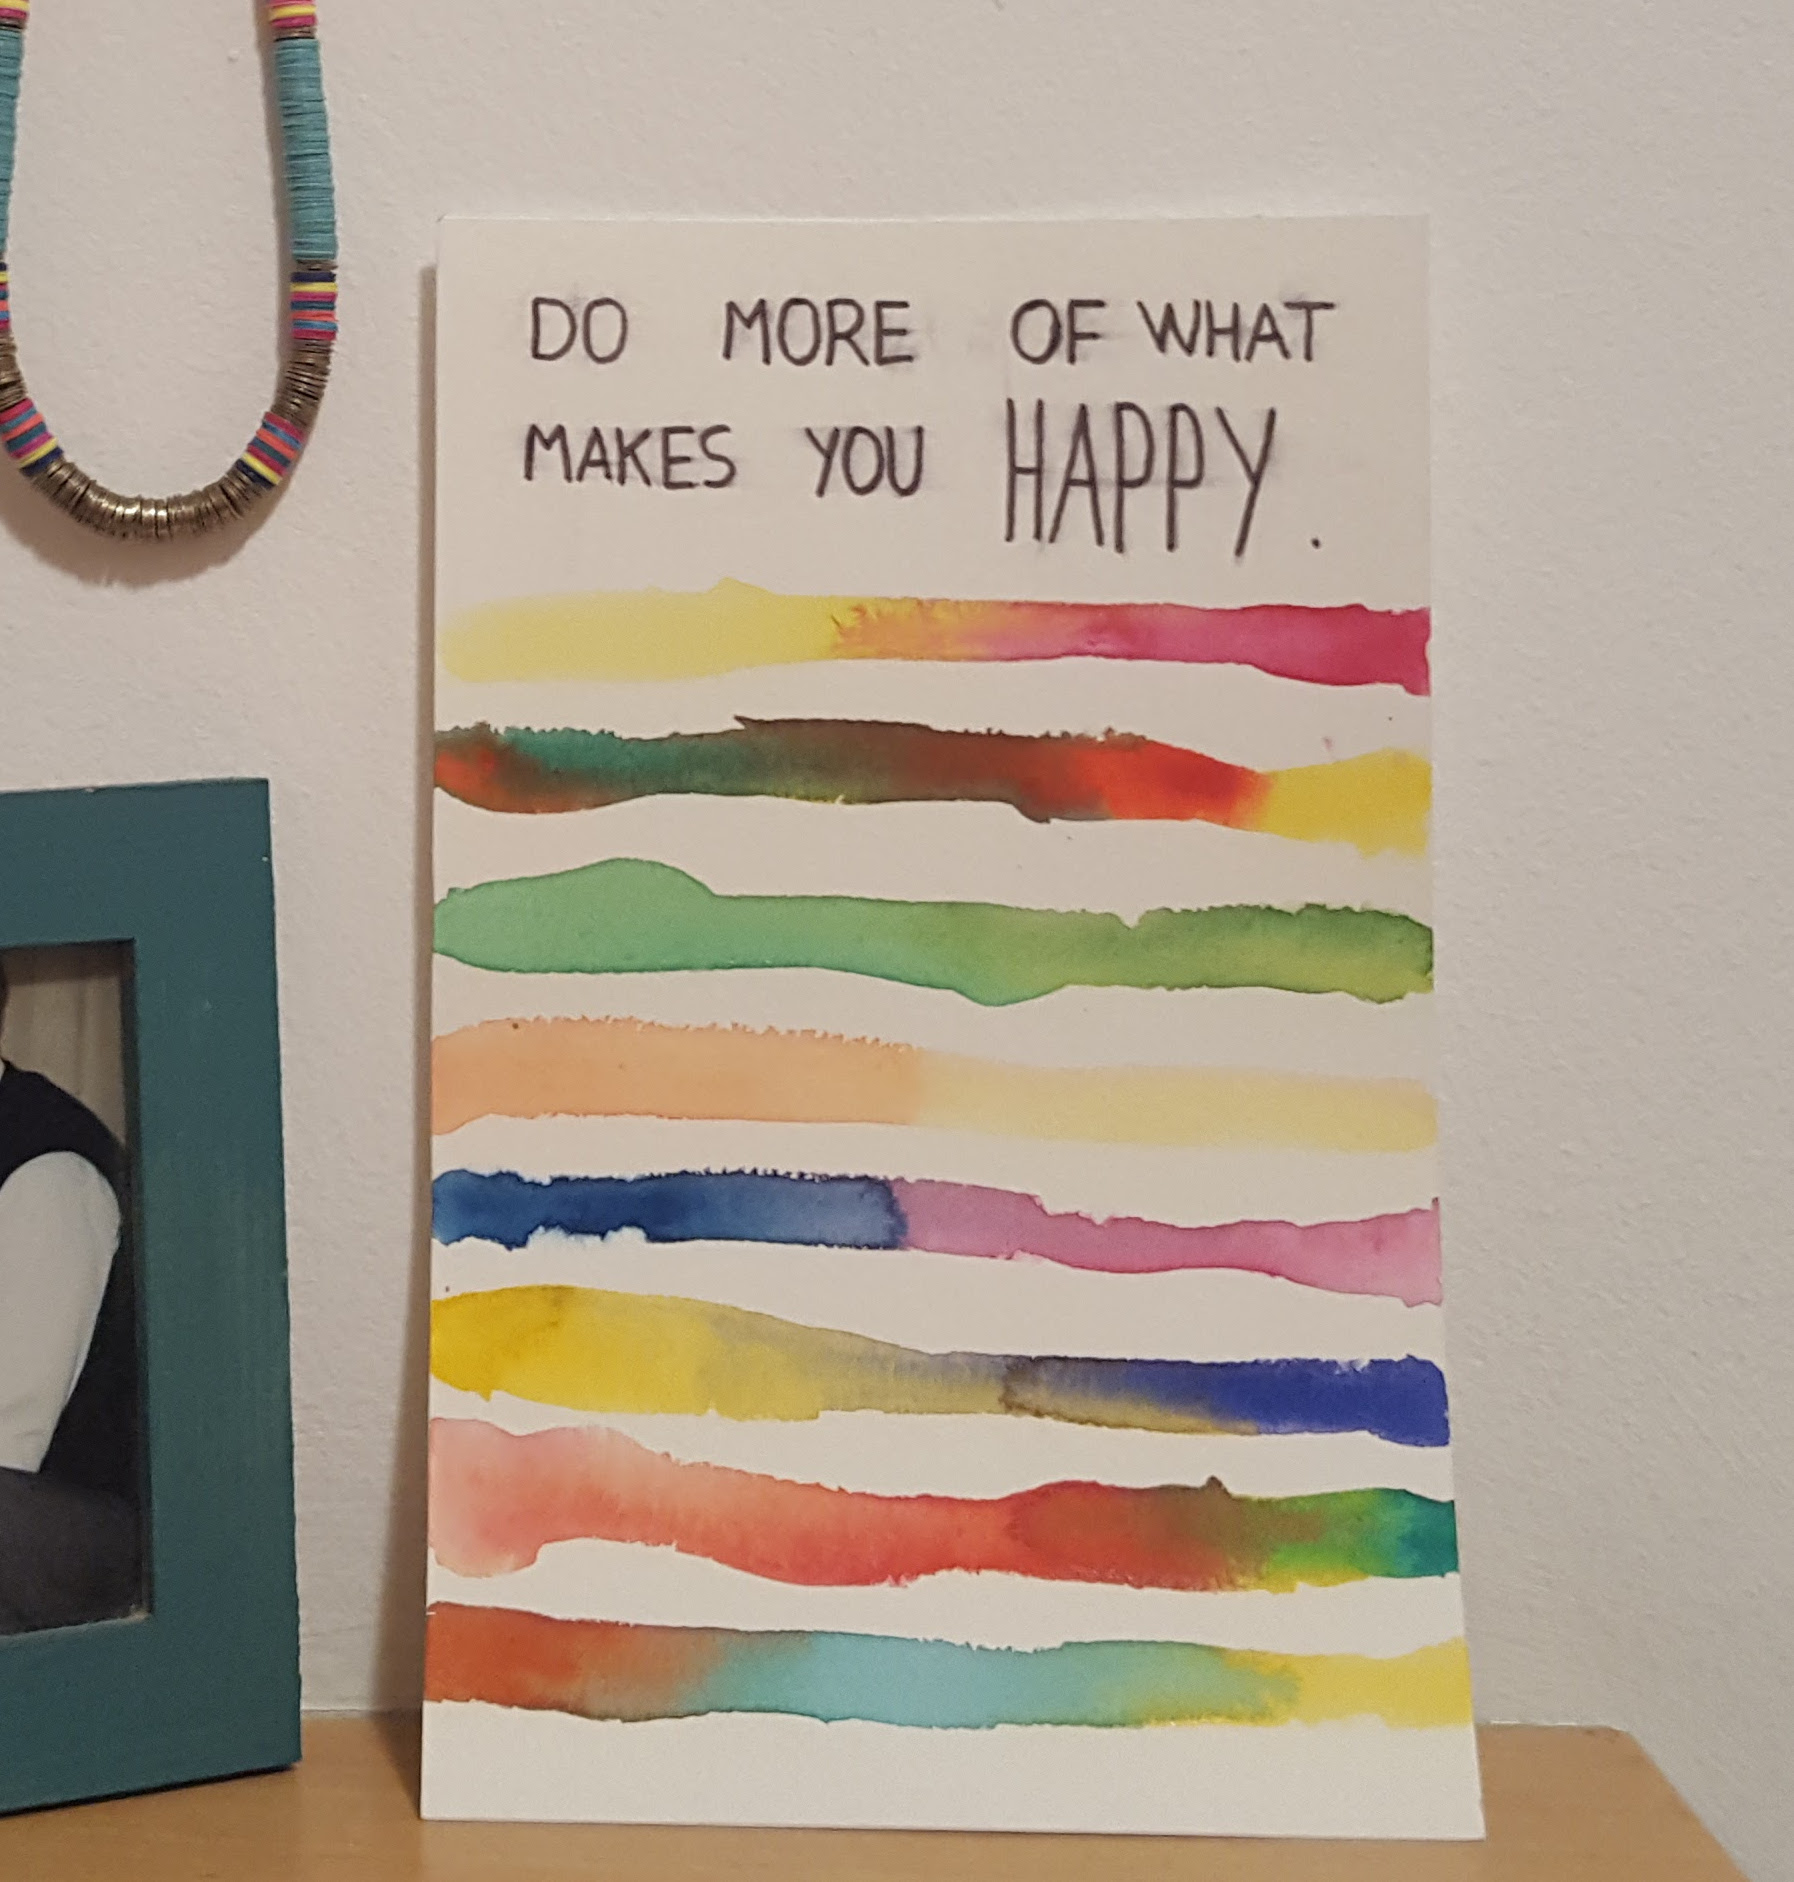 DO MORE OF WHAT
MAKES YOU HAPPY.